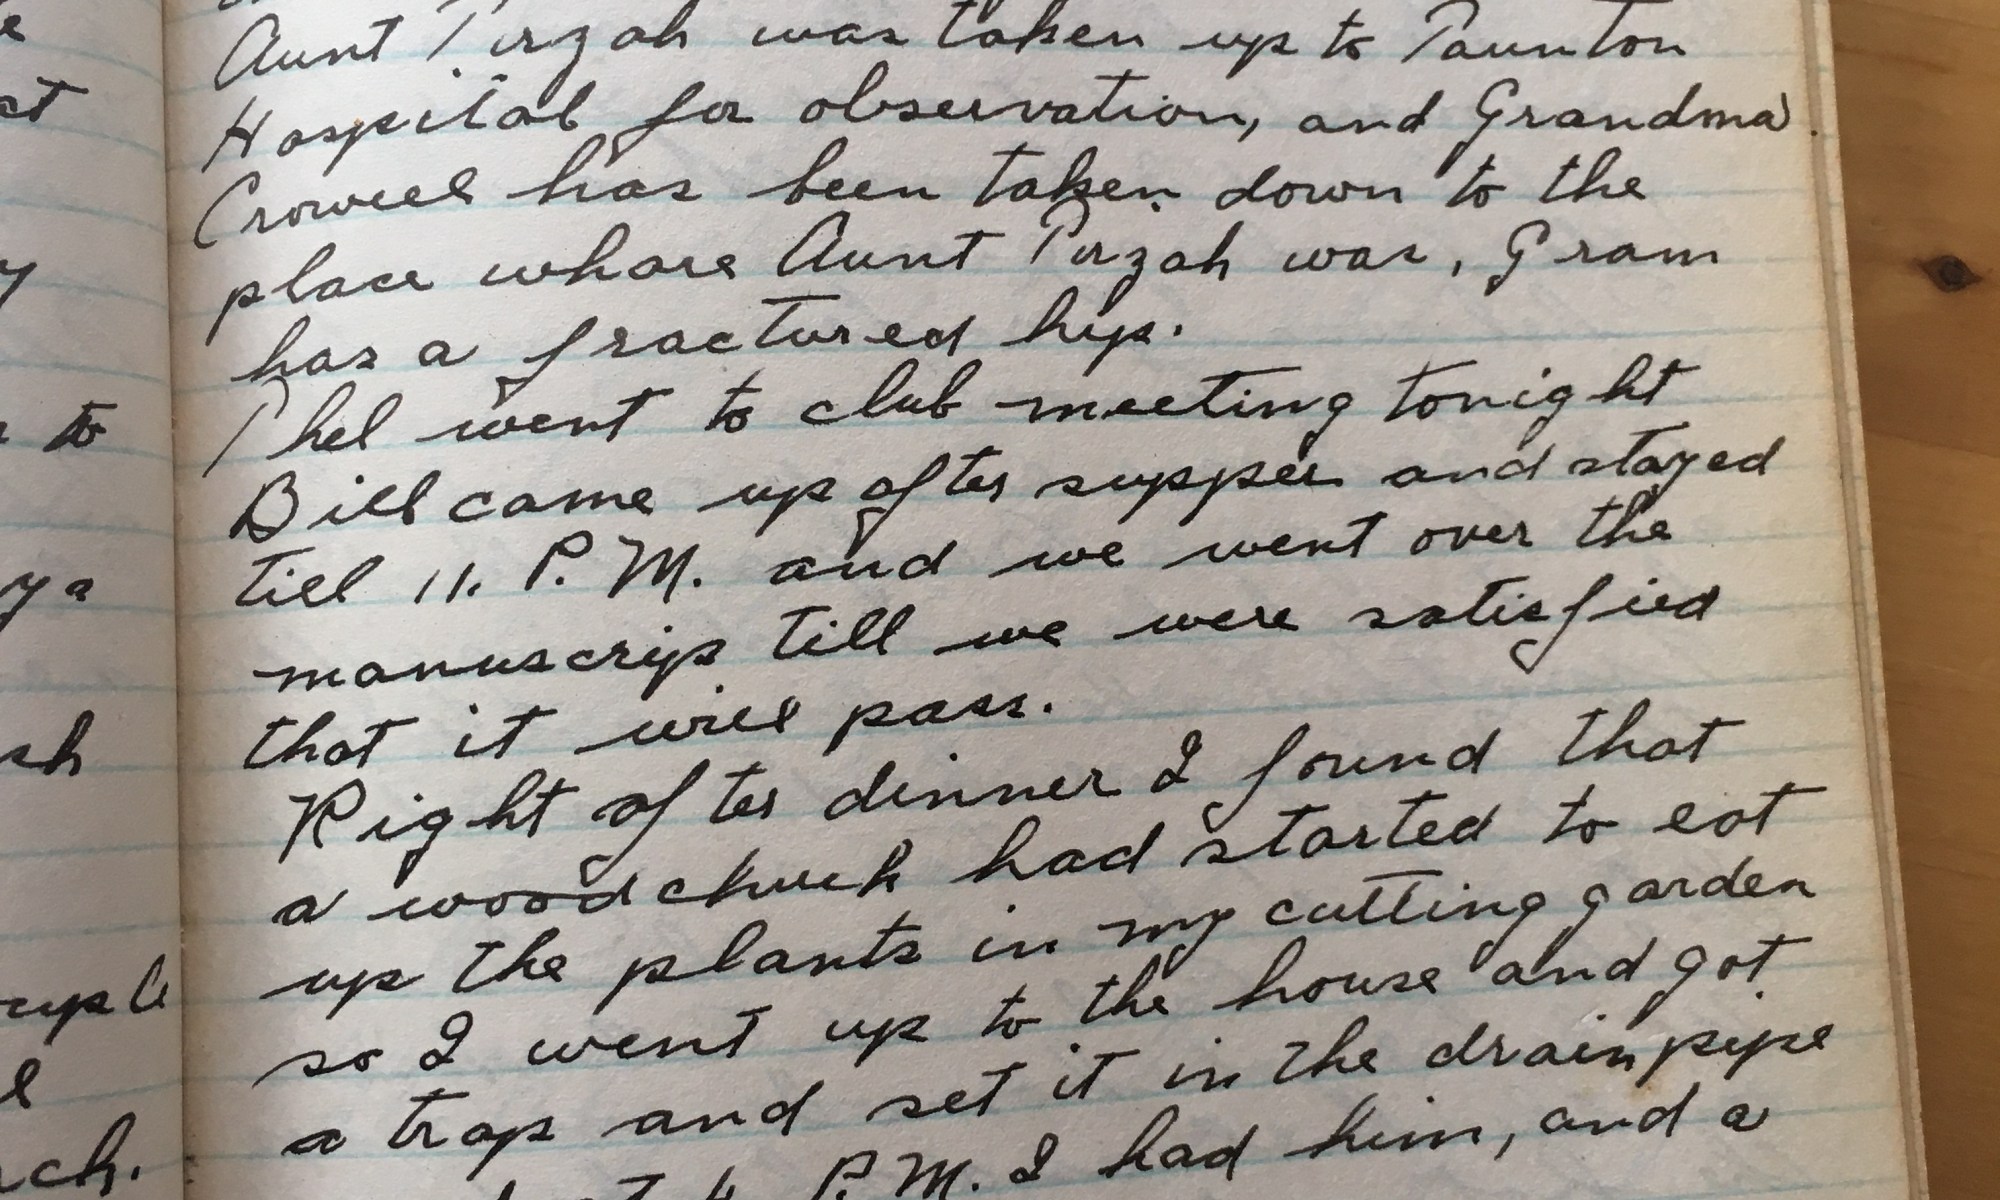 Aunt Tirzah was taken up to Taunton
Hospital for observation, and Grandma
Crowell has been taken down to the
place whare Aunt Tirzah was, Gram
has a fractured hip.
Thel went to club meeting tonight
Bill came up after supper and stayed
till 11. P.M. and we went over the
manuscrip till we were satisfied
that it will pass.
Right after dinner I found that
a woodchuck had started to eat
up the plants in my cutting garden
so I went up to the house and got
a trap and set it in the drain pipe
P.M. I had him, and a